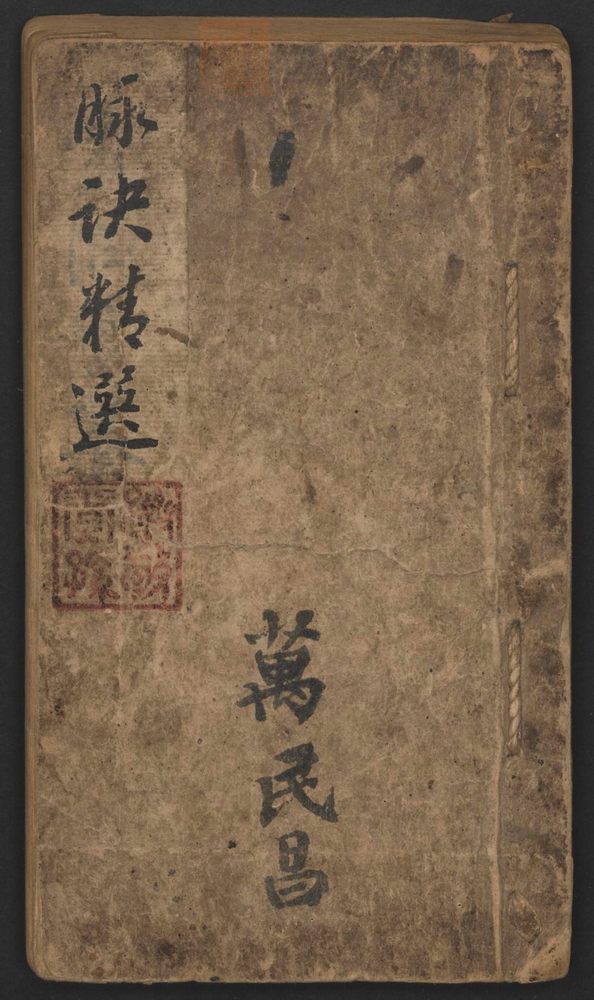 脉诀精選
萬民昌